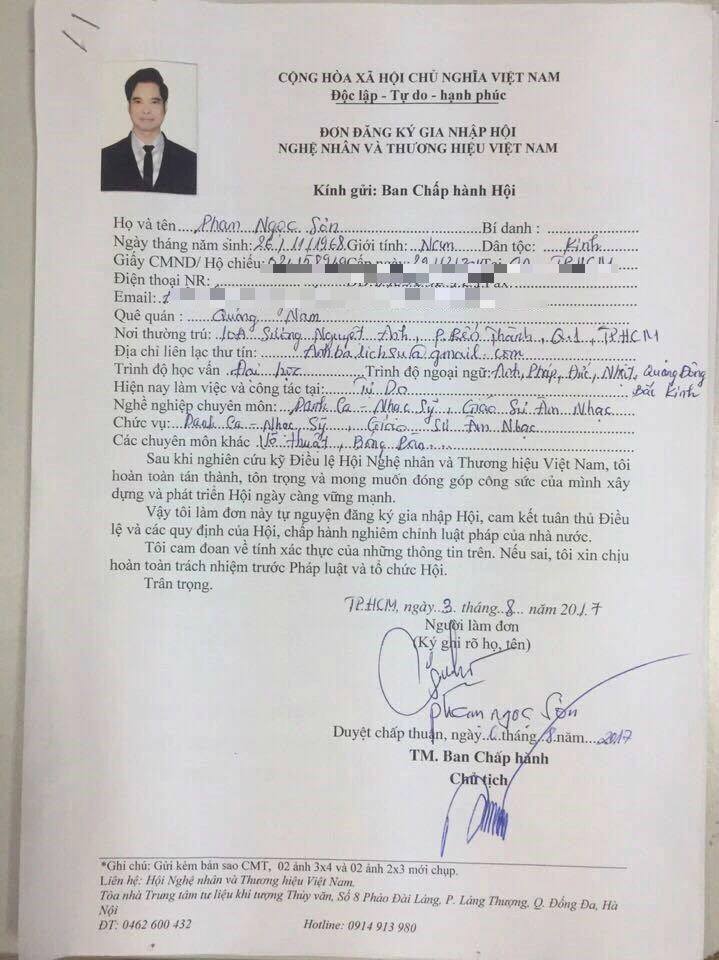 CỘNG HÒA XÃ HỘI CHỦ NGHĨA VIỆT NAM
Độc lập - Tự do - hạnh phúc
ĐƠN ĐĂNG KÝ GIA NHẬP HỘI
NGHỆ NHÂN VÀ THƯƠNG HIỆU VIỆT NAM
Kính gửi: Ban Chấp hành Hội
Họ và tên Phan Ngọc Sơn Bí danh :
Ngày tháng năm sinh: 26/11/1968 Giới tính: Nam Dân tộc: Kinh
Giấy CMND/ Hộ chiếu: Cấp ngày TP.HCM
Điện thoại NR:
Email:
Quê quán : Quảng Nam
Nơi thường trú: 10A Sương Nguyệt Ánh, P. Bến Thành, Q.1, TPHCM
Địa chỉ liên lạc thư tín:
Trình độ học vấn Đại học Trình độ ngoại ngữ: Anh, Pháp, Đức, Nhật, Quảng Đông
Bắc Kinh
Hiện nay làm việc và công tác tại: Tự Do
Nghề nghiệp chuyên môn: Danh Ca - Nhạc Sỹ, Giáo Sư Âm Nhạc
Chức vụ: Danh Ca - Nhạc Sỹ, Giáo sư Âm Nhạc
Các chuyên môn khác Võ thuật, Bóng Bàn
Sau khi nghiên cứu kỹ Điều lệ Hội Nghệ nhân và Thương hiệu Việt Nam, tôi
hoàn toàn tán thành, tôn trọng và mong muốn đóng góp công sức của mình xây
dựng và phát triển Hội ngày càng vững mạnh.
Vậy tôi làm đơn này tự nguyện đăng ký gia nhập Hội, cam kết tuân thủ Điều
lệ và các quy định của Hội, chấp hành nghiêm chỉnh luật pháp của nhà nước.
Tôi cam đoan về tính xác thực của những thông tin trên. Nếu sai, tôi xin chịu
hoàn toàn trách nhiệm trước Pháp luật và tổ chức Hội.
Trân trọng.
TP.HCM, ngày 3 tháng 8 năm 2017
Người làm đơn
(Ký ghi rõ họ, tên)
Phan Ngọc Sơn
Duyệt chấp thuận, ngày 6 tháng 8 năm 2017
TM. Ban Chấp hành
Chủ tịch
*Ghi chú: Gửi kèm bản sao CMT, 02 ảnh 3x4 và 02 ảnh 2x3 mới chụp.
Liên hệ: Hội Nghệ nhân và Thương hiệu Việt Nam.
Tòa nhà Trung tâm tư liệu khí tượng Thủy văn, Số 8 Pháo Đài Láng, P. Láng Thượng, Q. Đống Đa, Hà
Nội
ĐT: 0462 600 432 Hotline: 0914 913 980